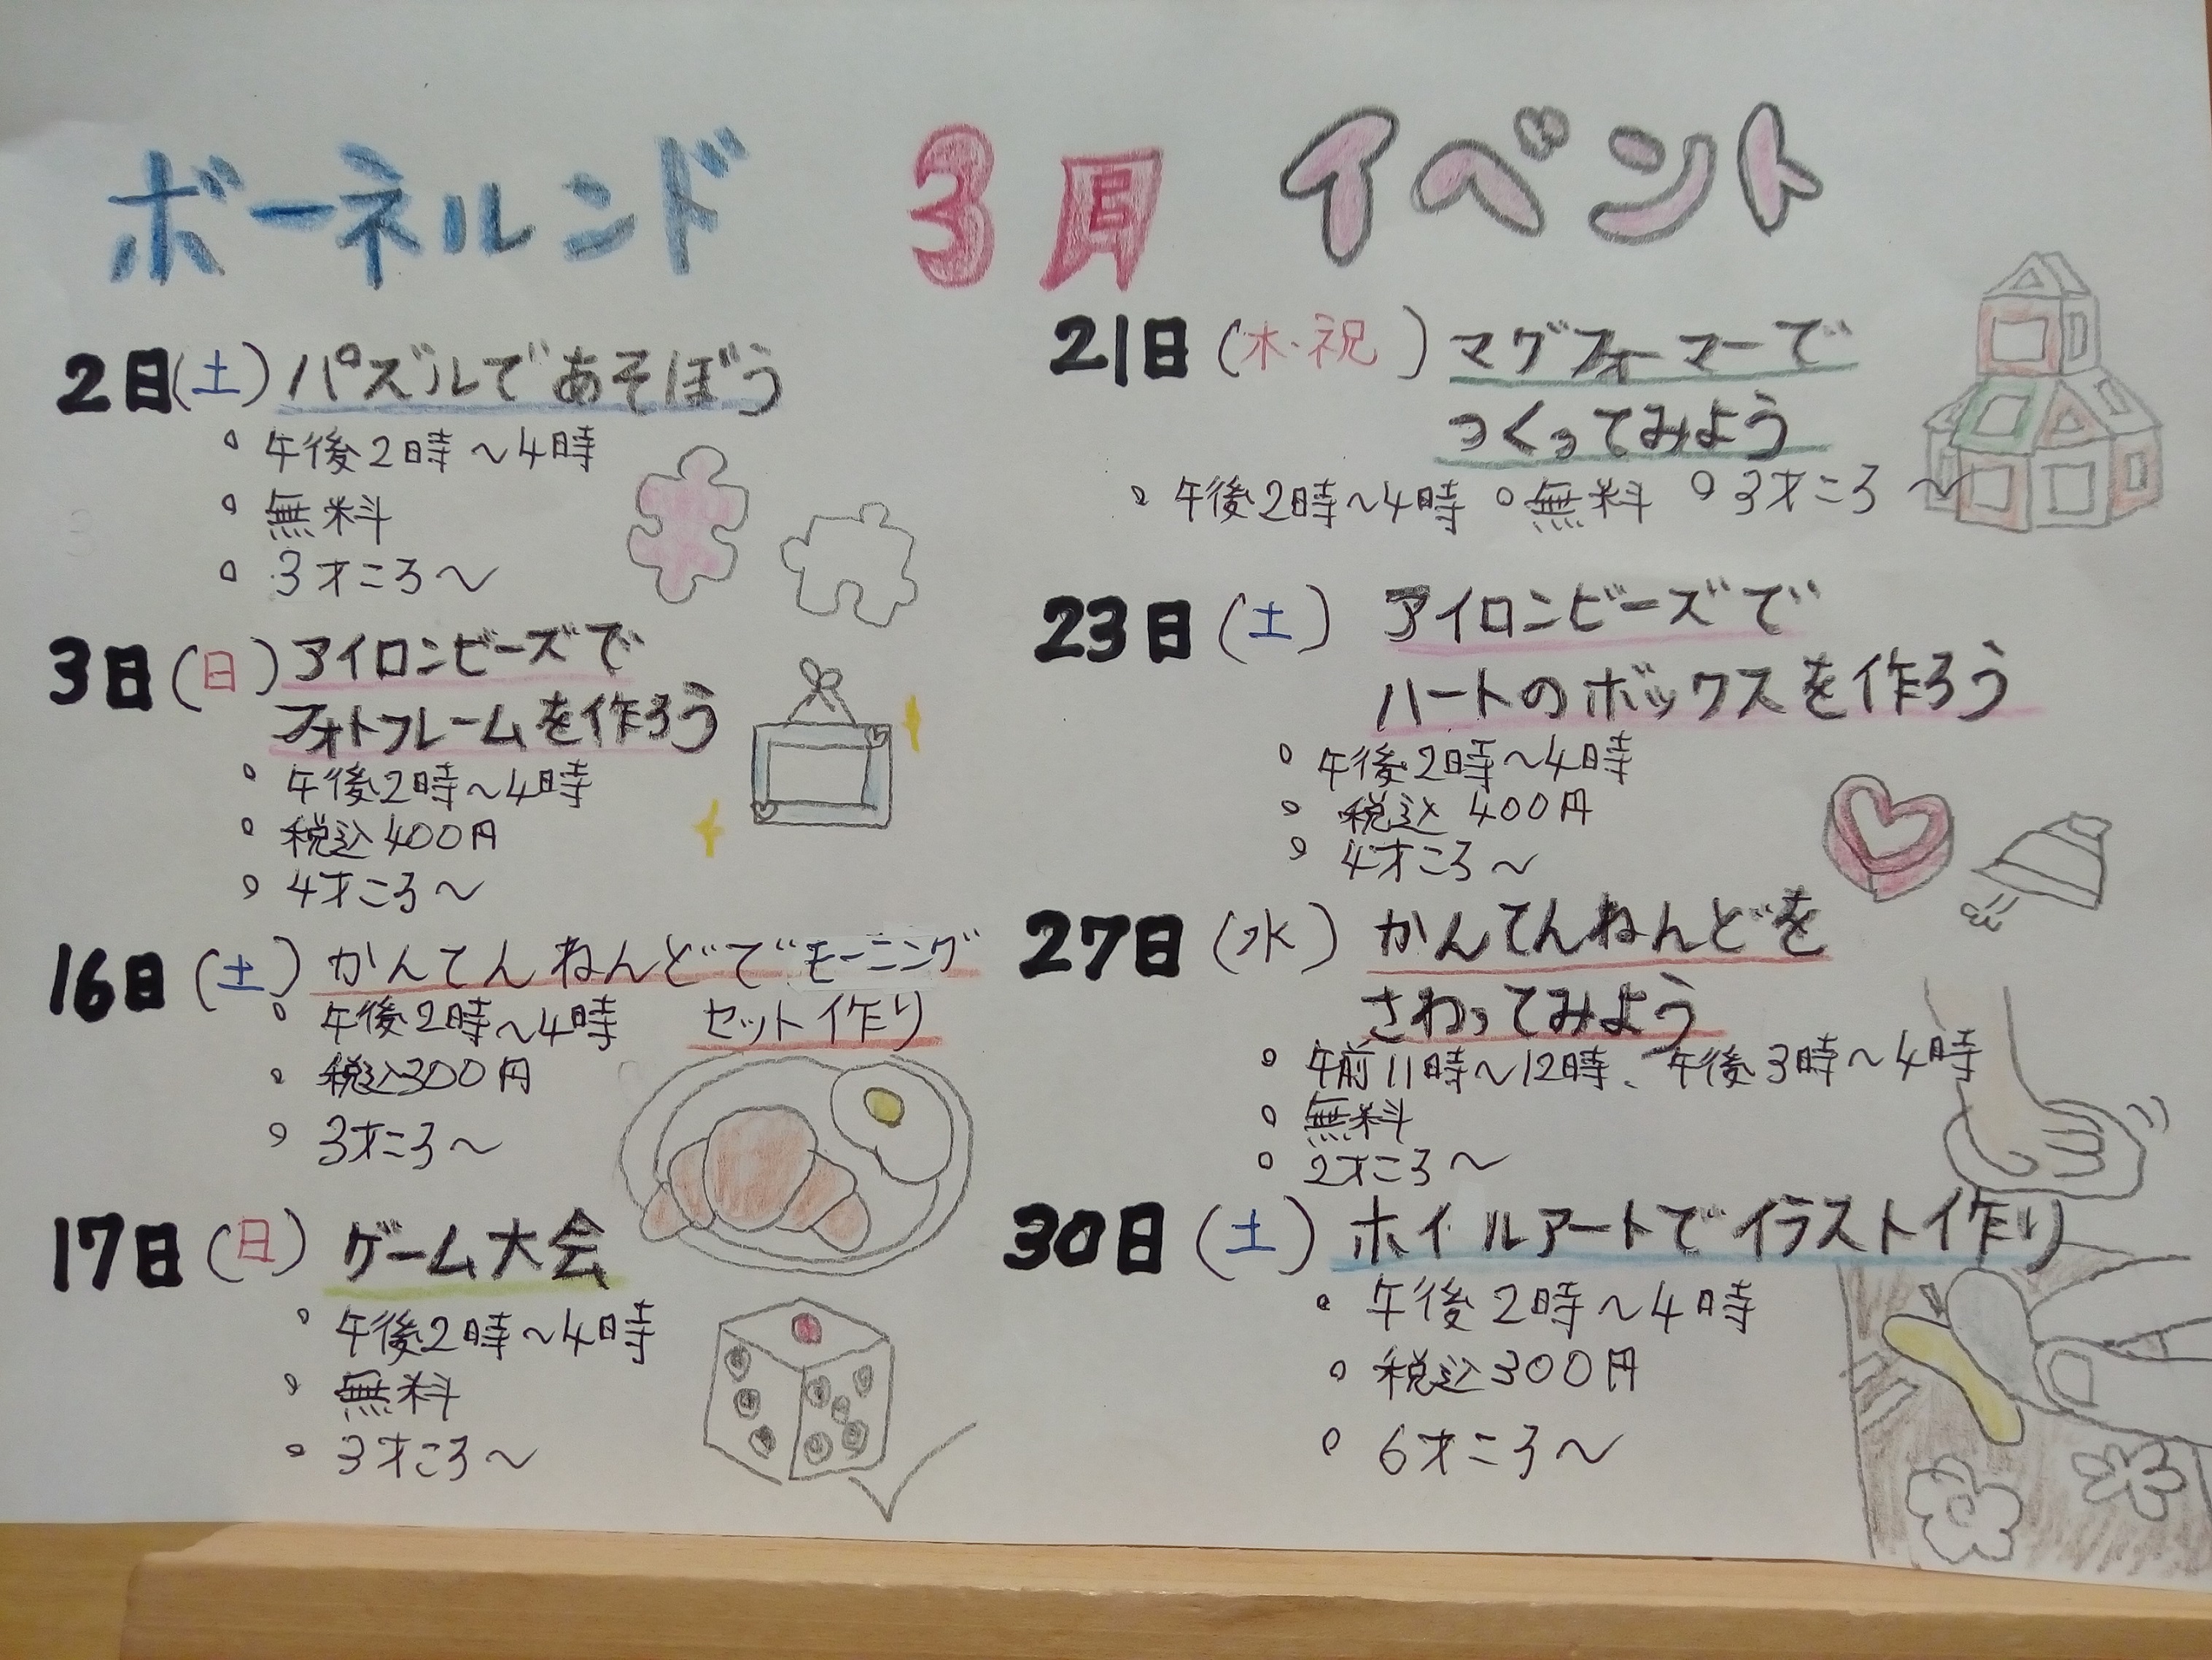 ボーネルンド 3月 イベント
2日(土) パズルであそぼう
。午後2時〜4時
。無料
。3才ころ〜
3日(日) アイロンビーズで
フォトフレームを作ろう
。午後2時〜4時
。税込400円
。4才ころ〜
16日(土) かんてんねんどでモーニング
セット作り
。午後2時〜4時
。税込300円
。3才ころ〜
17日(日) ゲーム大会
。午後2時〜4時
。無料
。3才ころ〜
21日(木・祝) マグフォーマーで
つくってみよう
。午後2時〜4時 。無料 。3才ころ〜
23日(土) アイロンビーズで
ハートのボックスを作ろう
。午後2時〜4時
。税込400円
。4才ころ〜
27日(水) かんてんねんどを
さわってみよう
。午前11時〜12時、午後3時〜4時
。無料
。2才ころ〜
30日(土) ホイルアートでイラスト作り
。午後2時〜4時
。税込300円
。6才ころ〜